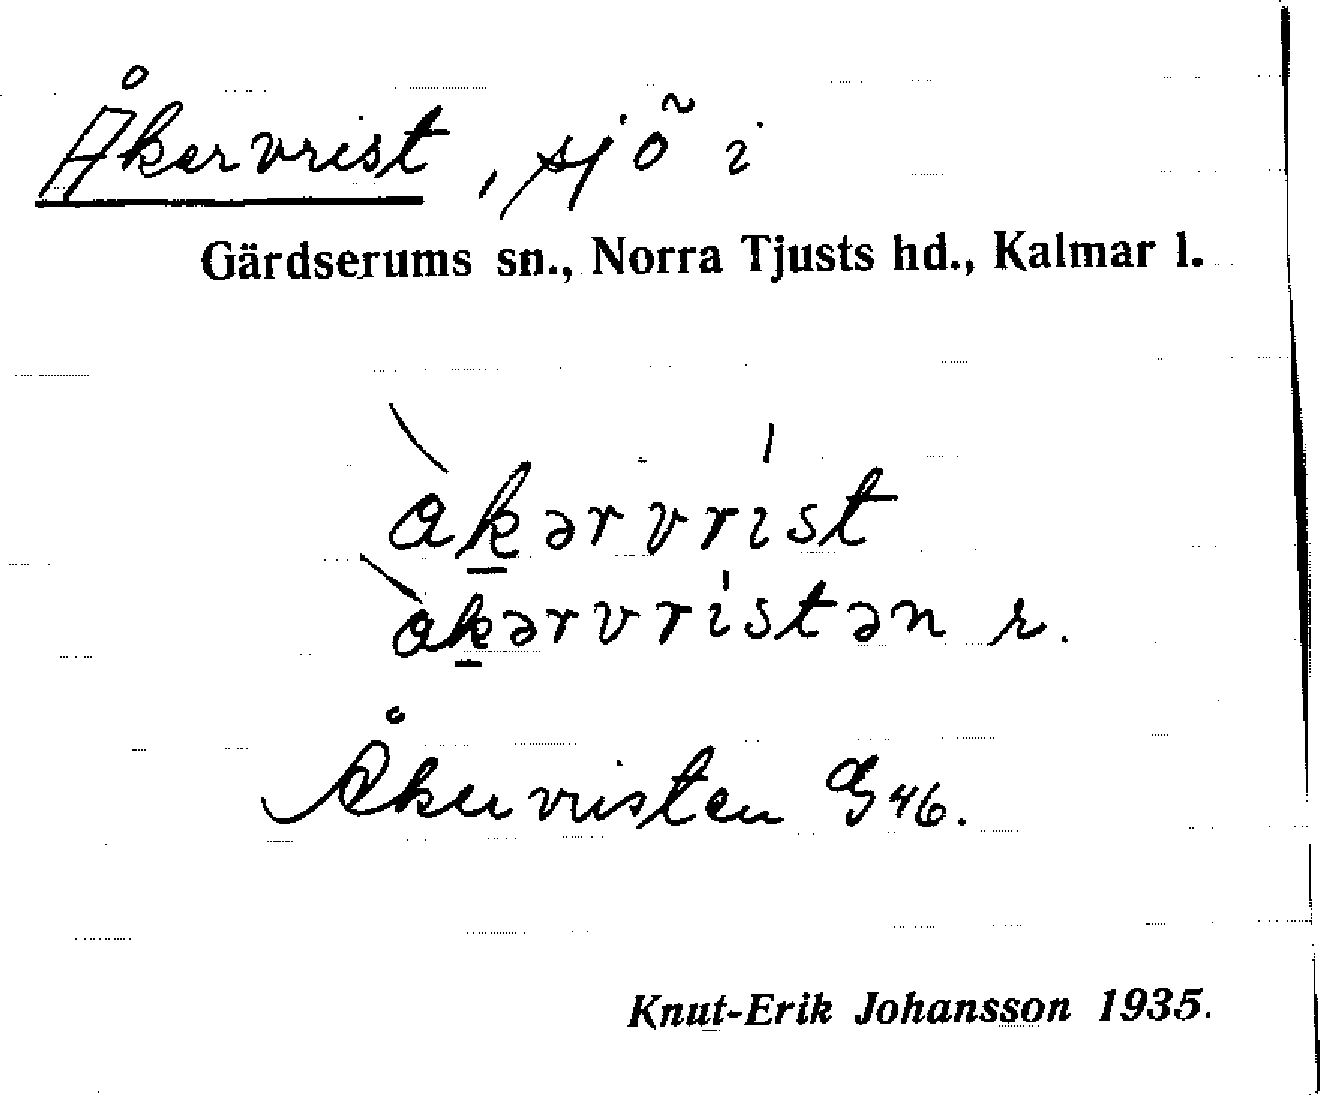 Åkervrist, sjö i
Gärdserums sn., Norra Tjusts hd., Kalmar l.
åk̲ərvrist
åk̲ərvristən r.
Åkervristen G46.
Knut-Erik Johansson 1935.